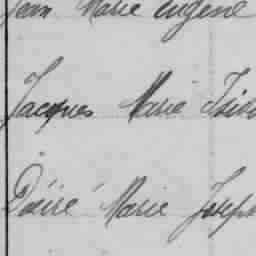 Jean Marie Eugène
Jacques Marie Isid
Désiré Marie Joseph